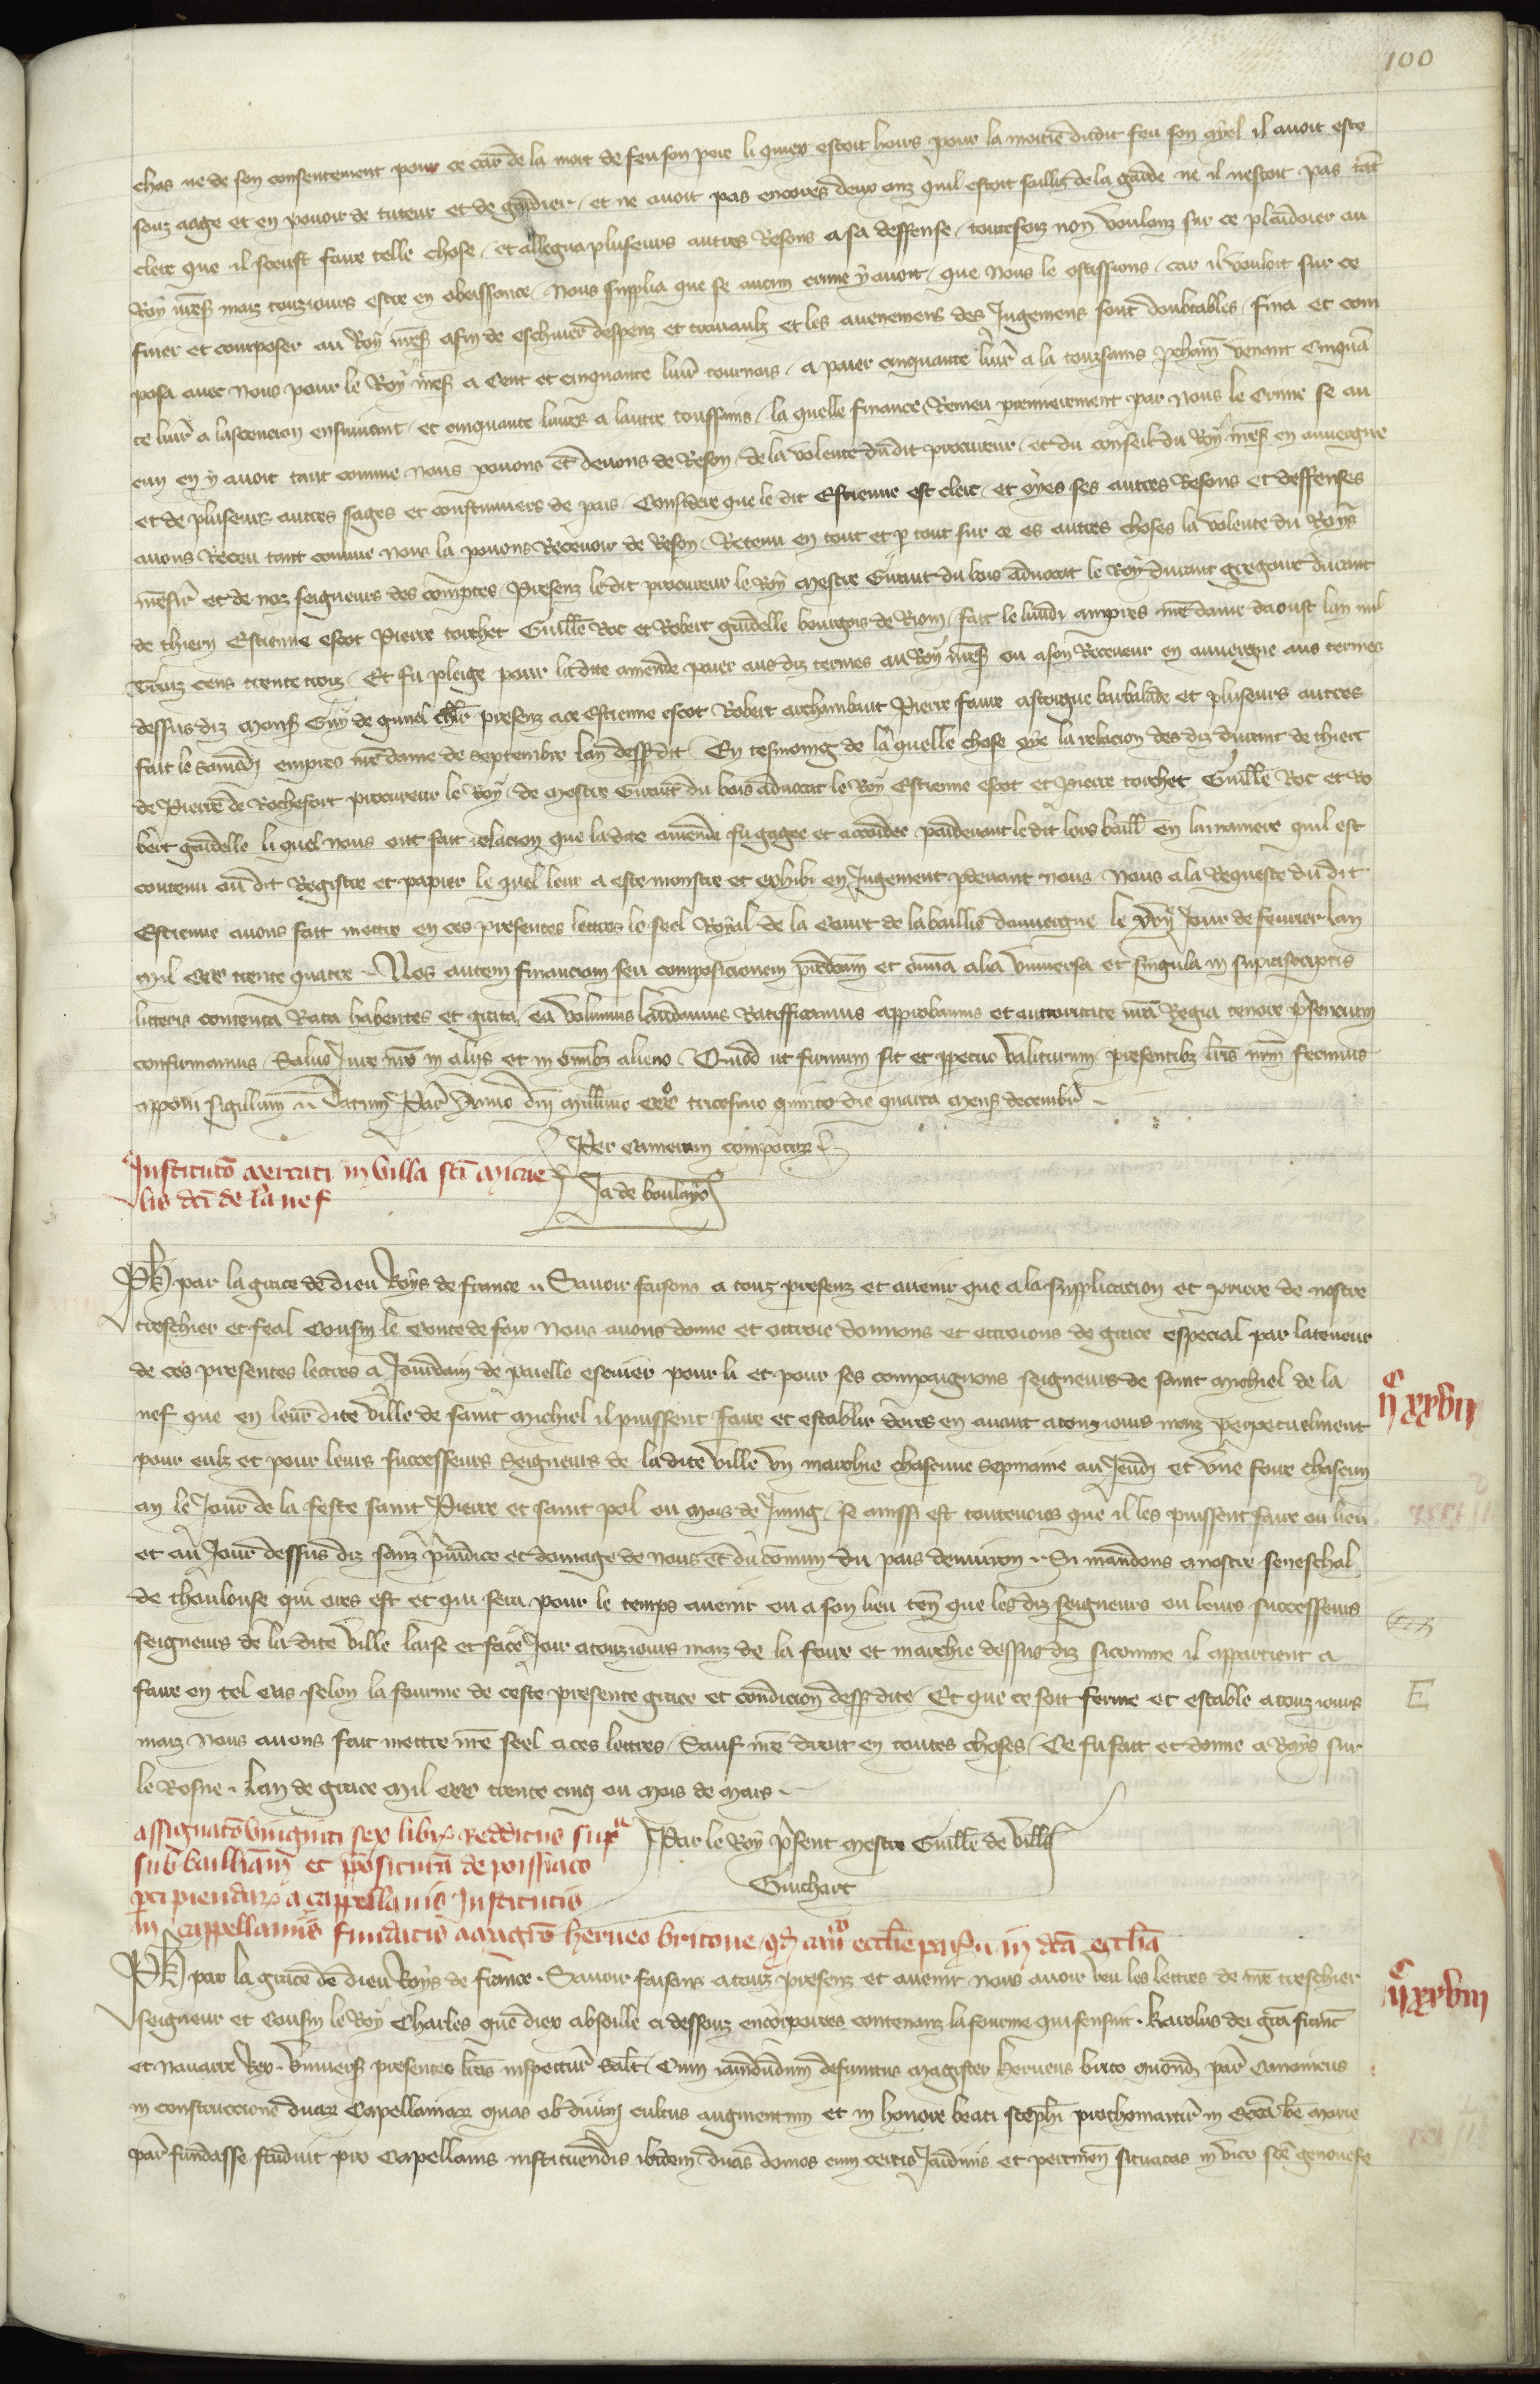 100
chos ne de son consentement pour ce car de la mort de feu son pere li quiex estoit hoirs pour la moitie dudit feu son ayel il avoit este
souz aage et en povoir de tuteur et de gardier, et ne avoit pas encores deux anz quil estoit saillis de la garde ne il nestoit pas tant
clerc que il sceust faire telle chose, et allegua pluseurs autres Resons a sa deffense, toutesfoiz non voulanz sur ce plaidoier au
Roy nres mais touziours estre en obeissance, Nous supplia que se aucun crime y avoit, que Nous le ostissions, car il vouloit sur ce
finer et composer au Roy nres afin de eschiver despenz et travaulz et les avenemens des Jugemens sont doubtables, fina et com
posa avec Nous pour le Roy nres a Cent et cinquante livr tournois, a paier cinquante livr a la touzsains prcham venant Cinqua
te livr a lascencion ensuivant, et cinquante livres a lautre toussains, la quelle finance, Remeu premierement par Nous le Crime se au
cun en y avoit tant comme nous povons et devons de Reson, de la volente du dit procureur, et du conseil du Roy nres en auvergne
et de pluseurs autres sages et coustumiers de pais, Considere que le dit Estienne est clerc, et oyes ses autres Resons et deffenses
avons Receu tant comme nous la povons Recevoir de Reson, Retenu en tout et p tout sur ce es autres choses la volente du Roys
nresir et de noz seigneurs des comptes, Presenz le dit procureur le Roy Mestre Giraut du bois advocat le Roy durant gregoire durant
de thiern Estienne escot Pierre torchet Guille Roc et Robert gardelle bourgois de Riom, fait le lundi empres nre dame daoust lan mil
Trois cens trente trois, Et fu pleige pour ladite amende paier aus diz termes au Roy nres ou a son Receveur en auvergne aus termes
dessus diz mons Guy de ginel chlr presenz ace Estienne escot Robert archambaut Pierre faure astorgue barbalade et pluseurs autres
fait le Samedi empres nre dame de septembre lan dess dit, En tesmoing de la quelle chose oye la relacion des diz durant de thiert
de Pierre de Rochefort procureur le Roy, de mestre Giraut du bois advocat le Roy Estienne escot et Pierre torchet Guille Roc et Ro
bert gardelle li quel nous ont fait relacion que ladite amende fu gagee et accordee pardevant le dit lors baill en la maniere quil est
contenu ou dit Registre et papier le quel leur a este monstre et exhibi en Jugement pdevant nous, Nous a la Requeste du dit
Estienne avons fait mettre en ces presentes lettres le seel Royal de la Court de la baillie dauvergne le Jour de fevrier lan
mil ccc trente quatre, Nos autem financiam seu composicionem predcam et omnia alia universa et singula in suprascriptis
litteris contenta Rata habentes et grata, ea volumus laudamus Ratifficamus approbamus et auctoritate nra Regia tenore presencium
confirmamus, Salvo Jure nro in aliis et in omibz alieno, Quod ut firmum sit et ppetuo valiturum presentibz lris nrm fecimus
apponi sigillum, Datum Par Anno dni Millimo ccco tricesimo quinto die quarta mens decembr
Per Cameram compotor
Ja de boulayo
Institucio mercati in villa sci Michae
lis dci de la nef
Ph par la grace de dieu Roys de france, Savoir faisons a touz presenz et avenir que a la supplicacion et priere de nostre
treschier et feal Cousin le Conte de foix Nous avons donne et ottroie donnons et ottroions de grace especial par la teneur
de ces presentes lettres a Jourdain de paielle escuier pour li et pour ses compaignons seigneurs de saint Michiel de la
nef que en leur dite ville de saint Michiel il puissent faire et establir dores en avant a touz iours mais perpetuelment
pour eulz et pour leurs successeurs Seigneurs de la dite ville un marchie chascune sepmaine au Jeudi et une foire chascun
an le Jour de la feste saint Pierre et saint pol ou mois de Juing, se ainssi est toutevoies que il les puissent faire ou lieu
et au Jour dessus diz sanz preiudice et domage de nous et du comun du pais denviron, Si mandons a nostre seneschal
de thoulouse qui ores est et qui sera pour le temps avenir ou a son lieu ten que les diz seigneurs ou leurs successeurs
seigneurs de la dite ville laisse et face Joir a touz iours mais de la foire et marchie dessus diz sicomme il appartient a
faire en tel cas selon la fourme de ceste presente grace et condicion dess dite, Et que ce soit ferme et estable a touz iours
mais Nous avons fait mettre nre seel a ces lettres, Sauf nre droit en toutes choses, Ce fu fait et donne a Roys sur
le Rosne, Lan de grace Mil ccc trente cinq ou Mois de Mars
ijc xxvii
E
Par le Roy present mestre Guille de Vill
Guichart
assignatio viginti sex libr Redditus supra
sub bailliam et prepositura de poissiaco
percipiendar a cappellanis Institutis
in cappellaniis fundatis a magro herveo britone qd can ecclie paris in dca ecclia
ijc xxviii
Ph par la grace de dieu Roys de france, Savoir faisons a touz presenz et avenir, Nous avoir veu les lettres de nre treschier
seigneur et Cousin le Roy Charles que diex absoille ci dessouz encorporees contenanz la fourme qui sensuit, Karolus dei gra franc
et Navarre Rex, Univers presentes lras inspectur Salt, Cum iamdudum defunctus Magister Herveus brito quond par Canonicus
in construccione duar Capellaniar quas ob divini cultus augmentum et in honore beati Stephi prothomartir in Ecca be Marie
par fundasse studuit pro Capellanis instituendis ibidem, duas domos cum certis Jardinis et pertinen situatas in vico sce genovefe